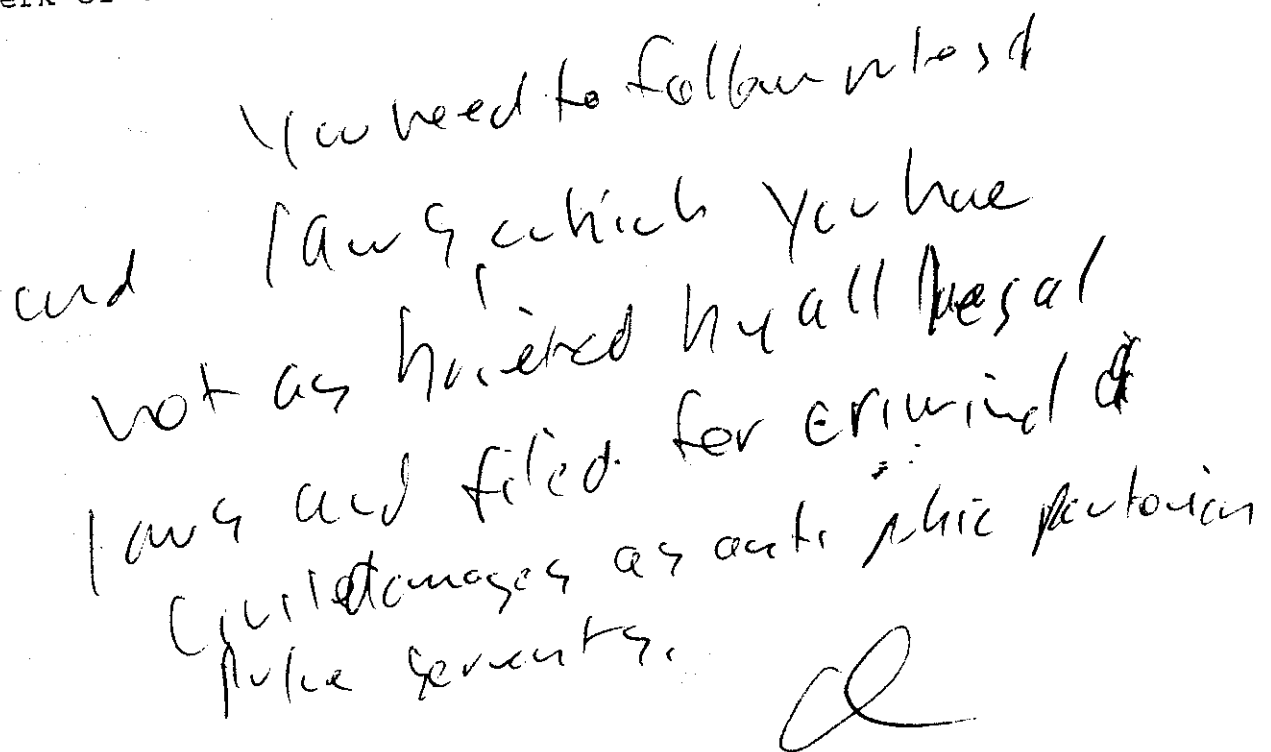 erk of
You need to follow rules &
and laws, which you have
not as by all legal
laws and filed for criminal &
Civil damages as anti
servants.